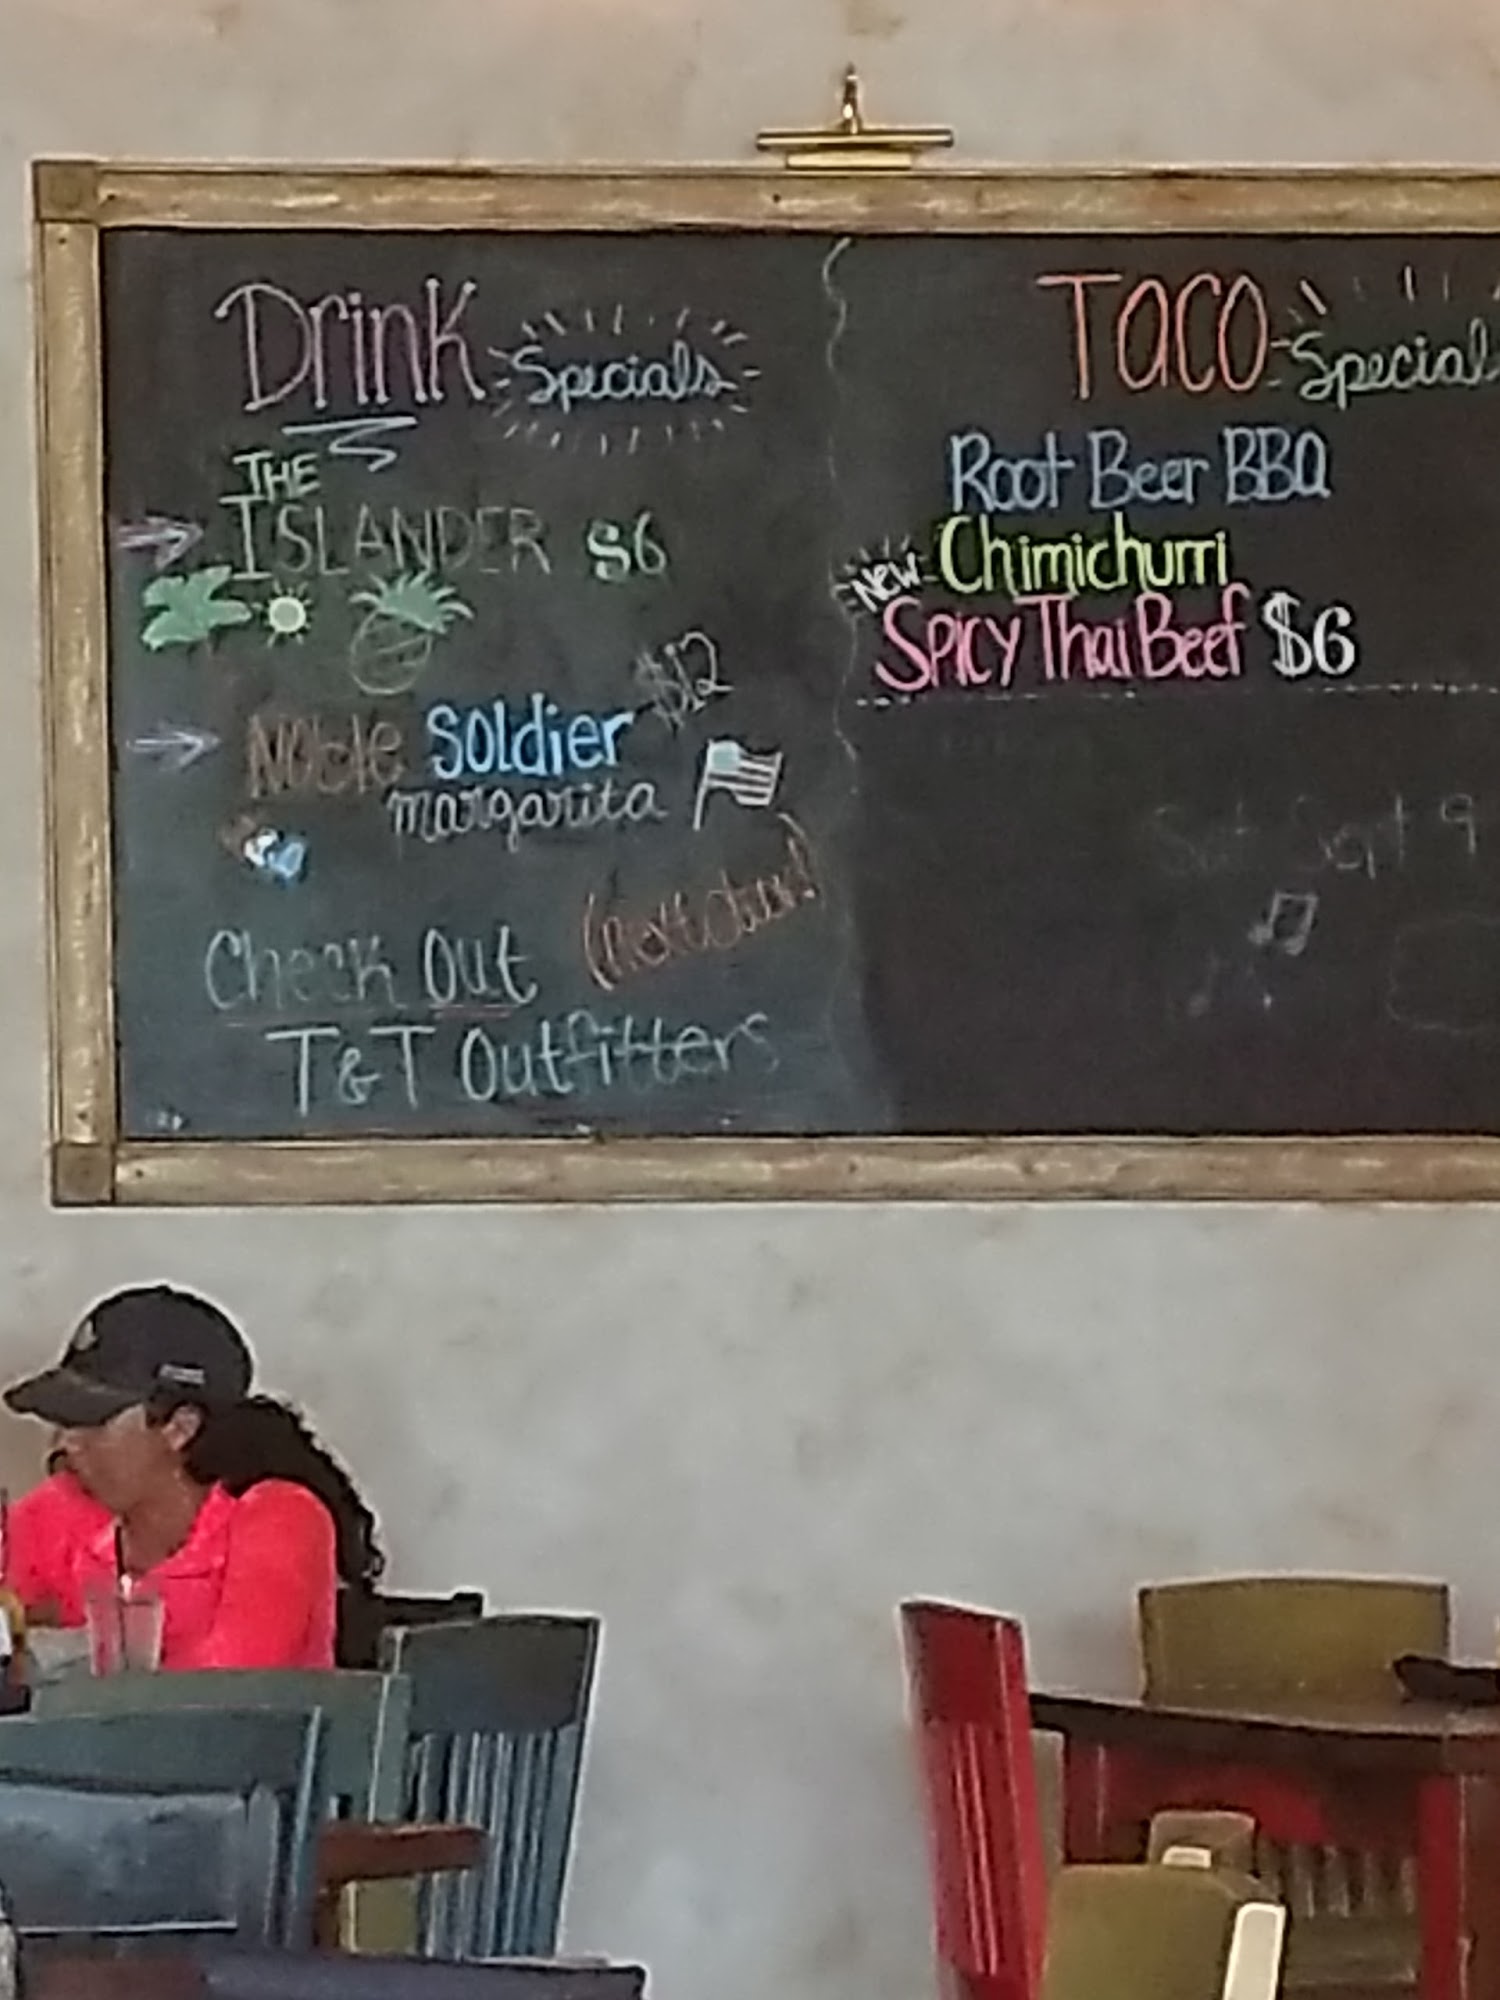 Drink Specials
THE
ISLANDER $6
$12
Noble Soldier
margarita
(next door!)
Check Out
T&T Outfitters
Taco Special
Root Beer BBQ
New Chimichurri
Spicy Thai Beef $6
Sat Sept 9